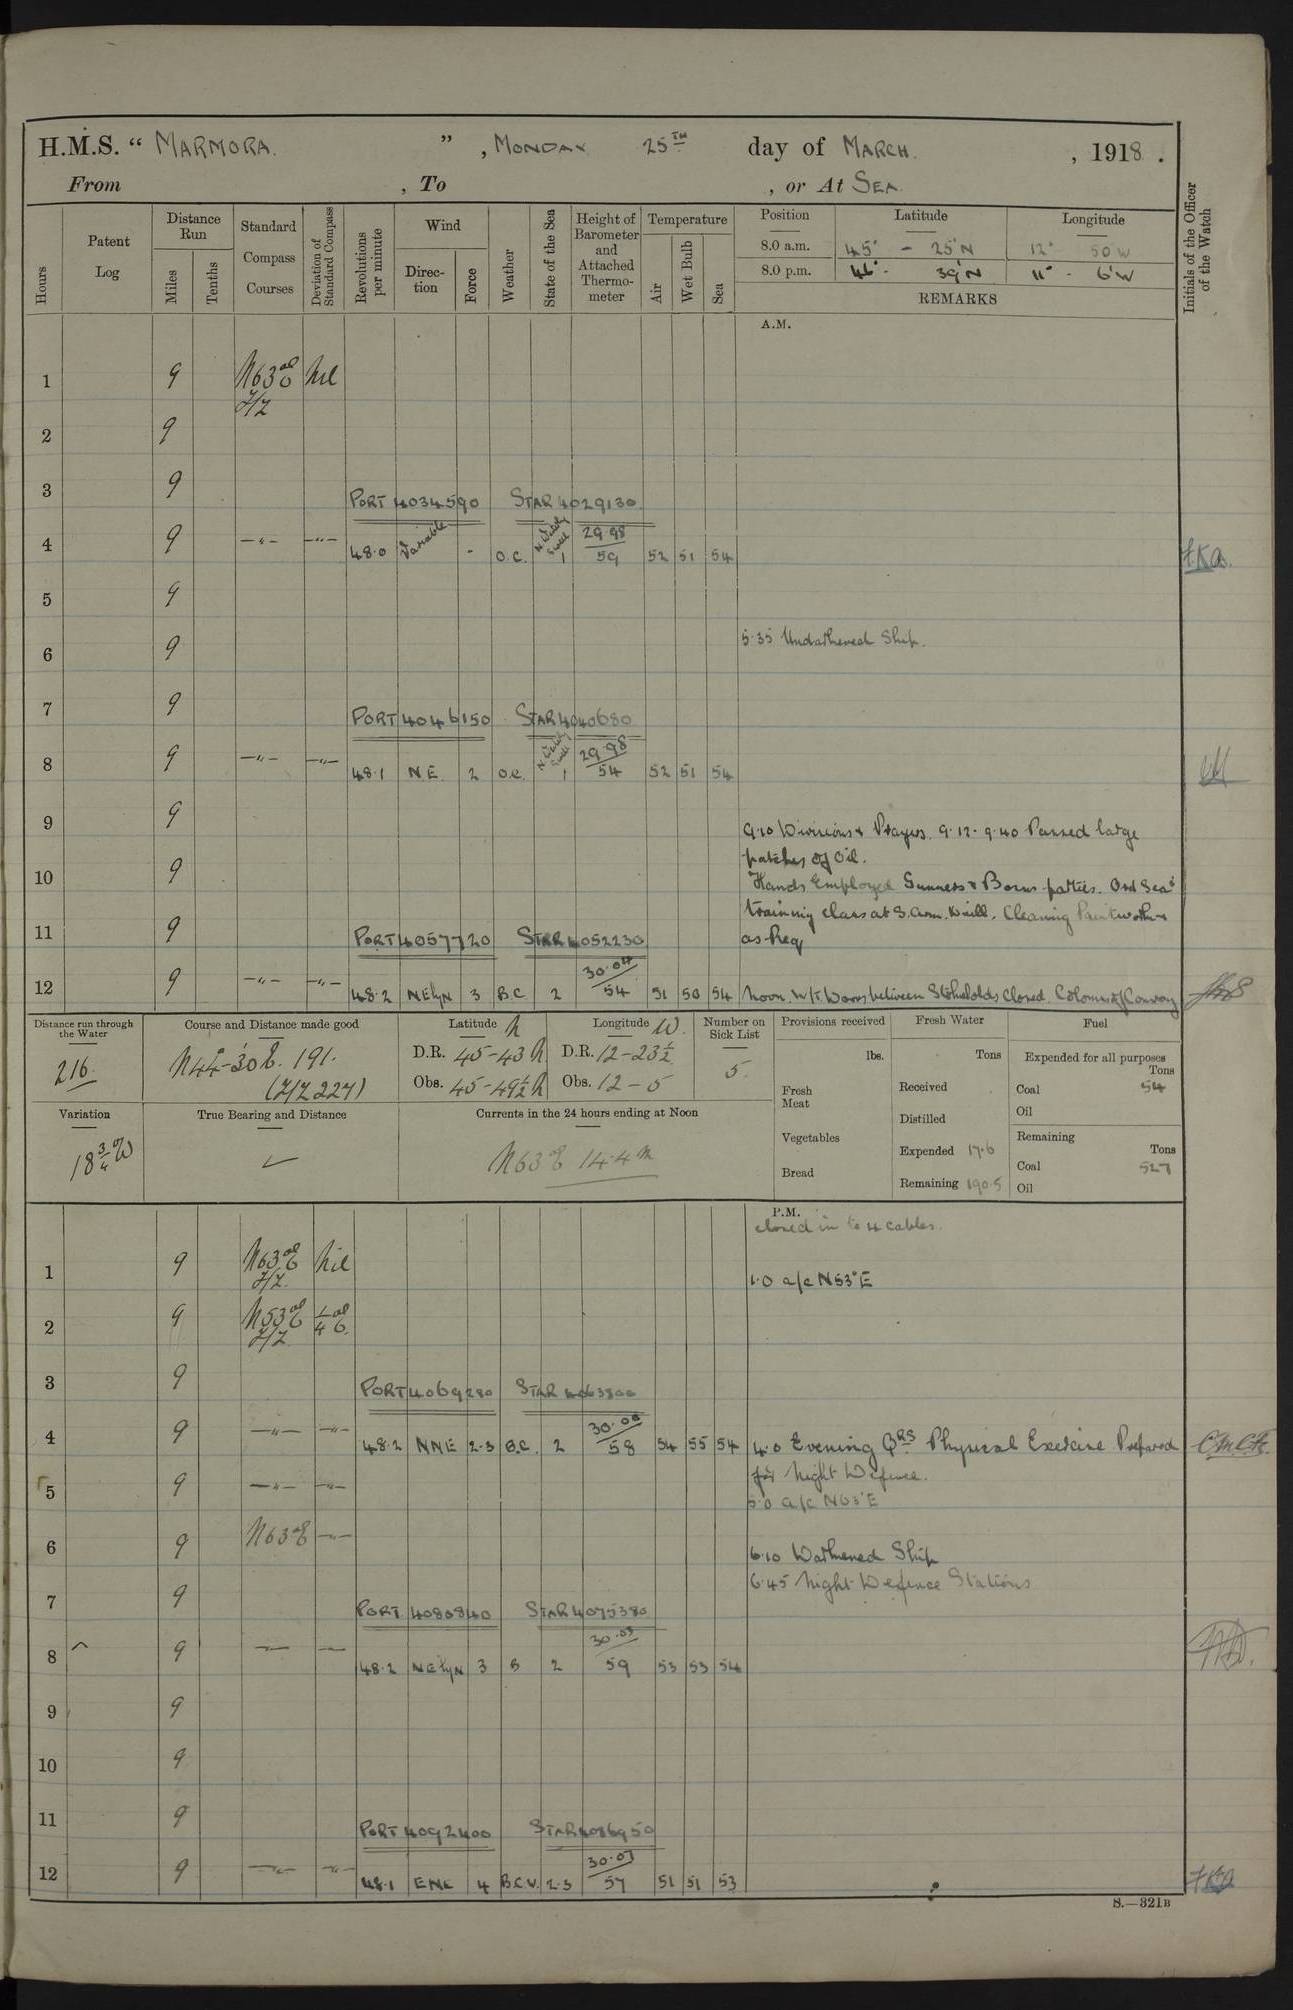 H.M.S. “ MARMORA. ” , MONDAY 25TH day of MARCH. , 1918 .
From , To , or At SEA.
Hours
Patent Log
Distance Run
Miles
Tenths
Standard Compass Courses
Deviation of Standard Compass
Revolutions per minute
Wind
Direc-tion
Force
Weather
State of the Sea
Height of Barometer and Attached Thermo-meter
Temperature
Air
Wet Bulb
Sea
Position Latitude Longitude
8.0 a.m. 45° - 25'N 12° 50'W
8.0 p.m. 46° - 39'N 11° - 6'W
REMARKS
Initials of the Officer of the Watch
A.M.
1 9 N63E nil
Z/Z
2 9
3 9
PORT 4034590 STAR 4029130
4 9 -"- -"- 48.0 Variable - O.C. N'Wely Swell 1 29.98 59 52 51 54
5 9
5.35 Undarkened Ship.
6 9
7 9
PORT 4046150 STAR 4040680
8 9 -"- -"- 48.1 NE 2 O.C. N'Wely Swell 1 29.98 54 52 51 54
9 9
9.10 Divisions & Prayers. 9.12-9.40 Passed large
patches of Oil.
10 9
Hands Employed Gunners & Bosns parties. Ord Sea's
training class at S. Arm. Drill. Cleaning Paintwork &
11 9 as Req
PORT 4057720 STAR 4052230
12 9 -"- -"- 48.2 NE'ly N 3 B.C. 2 30.04 54 51 50 54 Noon. W/T Doors between Stokeholds Closed. Columns of Convoy
Distance run through the Water
216
Course and Distance made good
N44-30E. 191.
(Z/Z 227)
Latitude N
D.R. 45-43 N
Obs. 45-49½ N
Longitude W.
D.R. 12-23½
Obs. 12-5
Number on Sick List
5.
Provisions received
lbs.
Fresh Meat
Vegetables
Bread
Fresh Water
Tons
Received
Distilled
Expended 17.6
Remaining 190.5
Fuel
Expended for all purposes
Tons
Coal 54
Oil
Remaining
Tons
Coal 527
Oil
Variation
18¾°W
True Bearing and Distance
Currents in the 24 hours ending at Noon
N63°E 14.4m
P.M.
closed in to 4 cables.
1 9 N63E nil
Z/Z.
1.0 a/c N53°E
2 9 N53E ¼ E.
Z/Z
3 9
PORT 4069280 STAR 4063800
4 9 -"- -"- 48.2 NNE 2-3 B.C. 2 30.00 58 54 55 54 4.0 Evening Qrs. Physical Exercise Prepared
for Night Defence.
5 9 -"- -"-
5.0 a/c N63°E
6 9 N63E -"-
6.10 Darkened Ship
6.45 Night Defence Stations
7 9
PORT 4080840 STAR 4075380
8 9 -"- -"- 48.2 NE'ly N 3 B 2 30.03 59 53 53 54
9 9
10 9
11 9
PORT 4092400 STAR 4086950
12 9 -"- -"- 48.1 ENE 4 B.C.V. 2-3 30.07 57 51 51 53
S.—321B